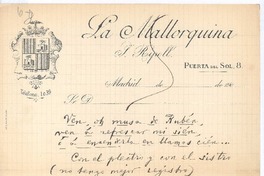 La Mallorquina
J. Ripoll
PUERTA DEL SOL, 8
Teléfono
Madrid de de 190
Sr. D.
Ven, oh musa de Rubén,
ven á refrescar mi sien,
ó á encenderla en llamas cien...
Con el plectro y con el sistro
(no tengo mejor registro)